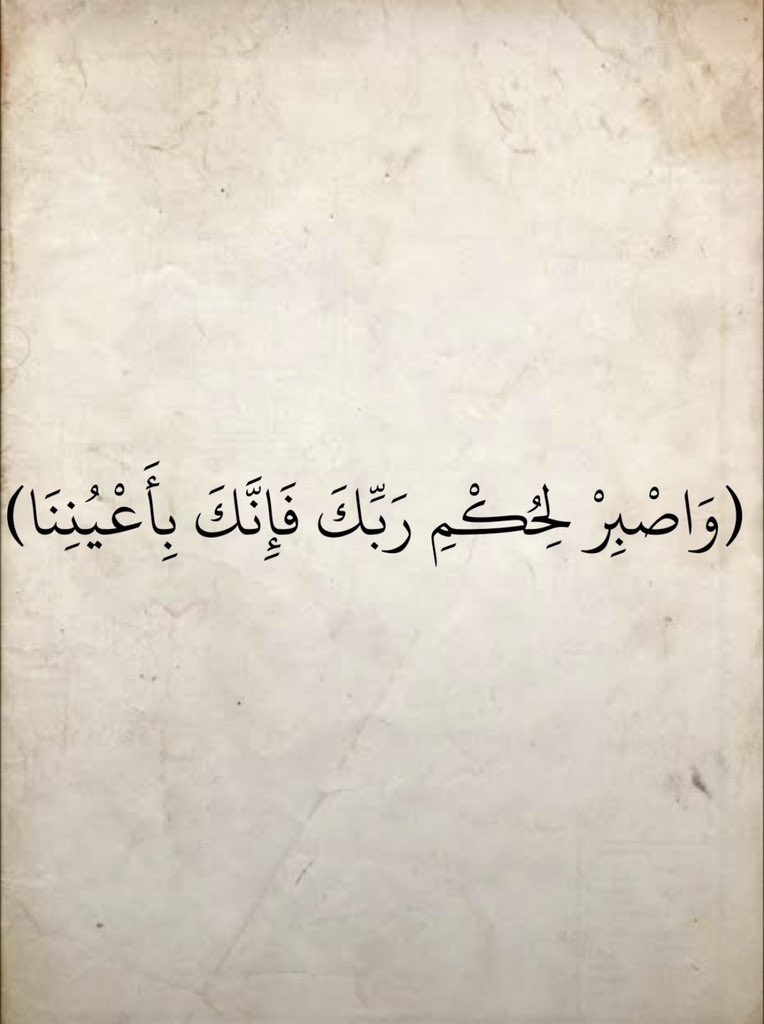 (وَاصْبِرْ لِحُكْمِ رَبِّكَ فَإِنَّكَ بِأَعْيُنِنَا)